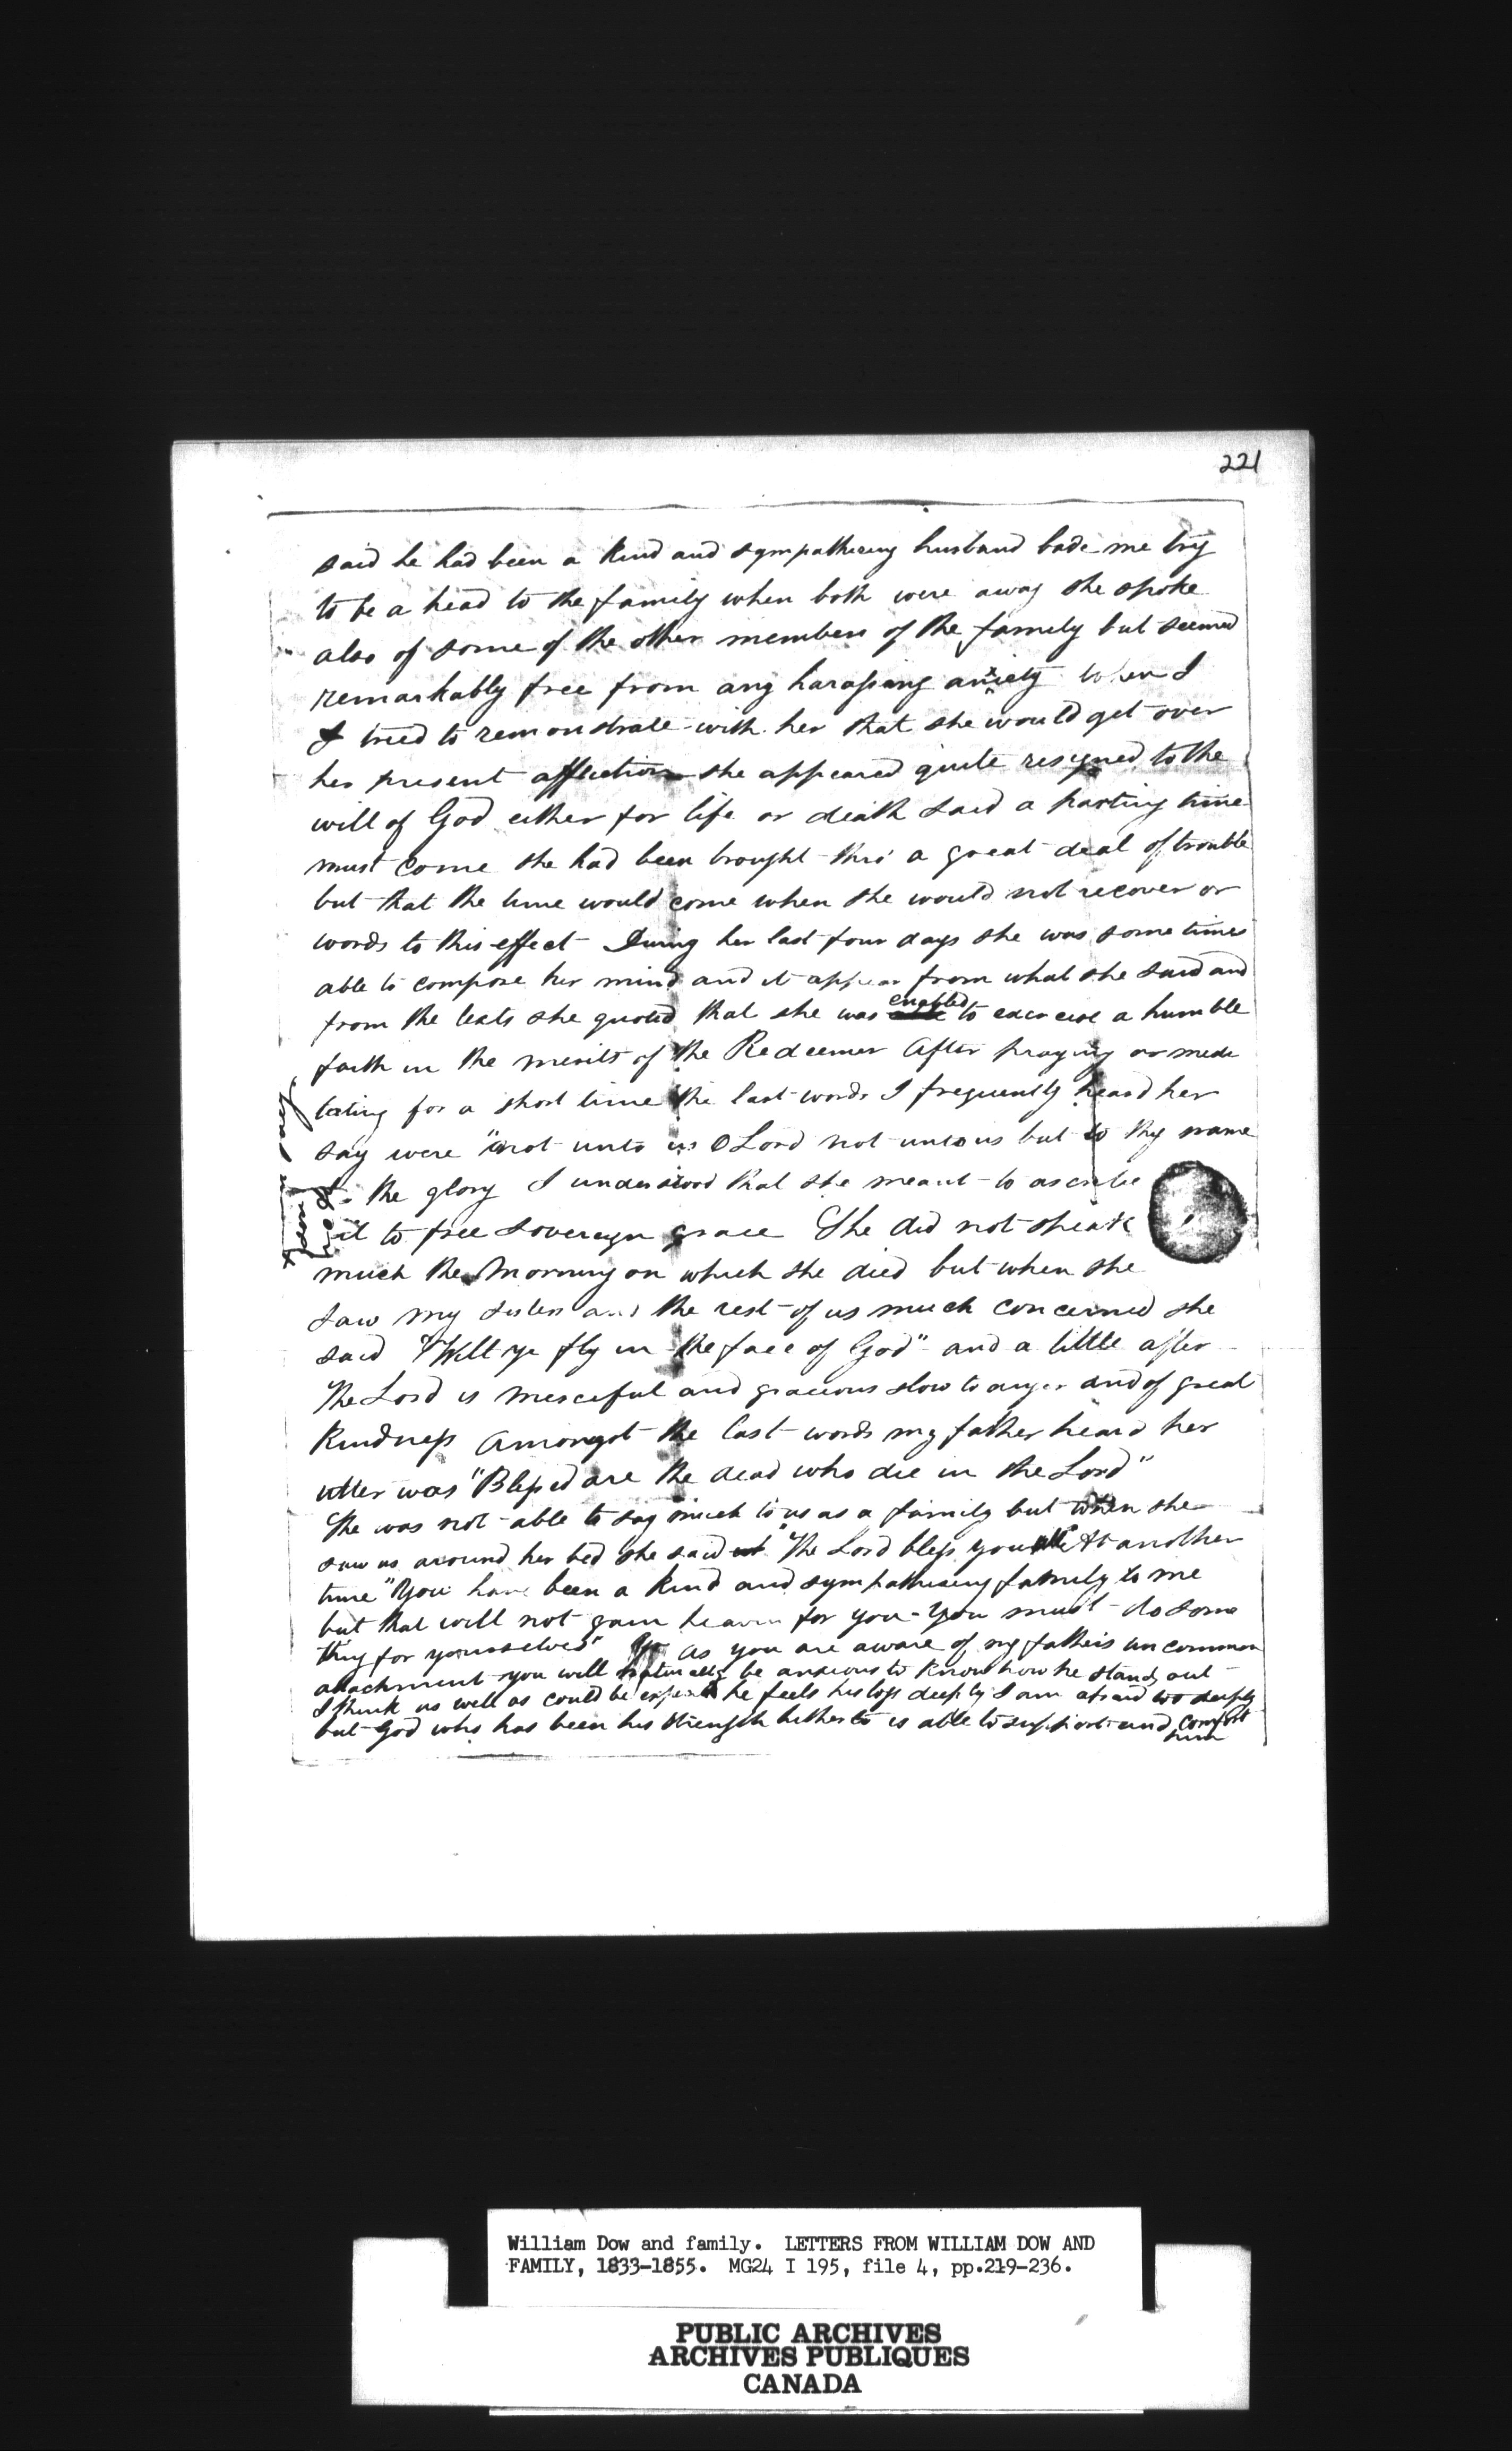 221
said he had been a kind and sympathising husband bade me try
to be a head to the family when both were away she spoke
also of some of the other members of the family but seemed
remarkably free from any harassing anxiety when I
I tried to remonstrate with her that she would get over
her present affliction she appeared quite resigned to the
will of God either for life or death said a parting time
must come she had been brought thro' a great deal of trouble
but that the time would come when she would not recover or
words to this effect During her last four days she was sometimes
able to compose her mind and it appear from what she said and
from the texts she quoted that she was enabled to exercise a humble
faith in the merits of the Redeemer After praying or medi
tating for a short time the last words I frequently heard her
say were "not unto us O Lord not unto us but to thy name
the glory I understood that she meant to ascribe
it to free sovereign grace She did not speak
much the Morning on which she died but when she
saw my sisters and the rest of us much concerned she
said "Will ye fly in the face of God" and a little after
The Lord is merciful and gracious slow to anger and of great
Kindness Amongst the last words my father heard her
utter was "Blessed are the dead who die in the Lord"
She was not able to say much to us as a family but when she
saw us around her bed she said "The Lord bless you all" At another
time "You have been a kind and sympathising family to me
but that will not gain heaven for you - You must do some
thing for yourselves" As you are aware of my fathers uncommon
attachment you will naturally be anxious to know how he stands out
I think as well as could be expected he feels his loss deeply I am afraid too deeply
but God who has been his strength hitherto is able to support and comfort
him
William Dow and family. LETTERS FROM WILLIAM DOW AND
FAMILY, 1833-1855. MG24 I 195, file 4, pp.219-236.
PUBLIC ARCHIVES
ARCHIVES PUBLIQUES
CANADA